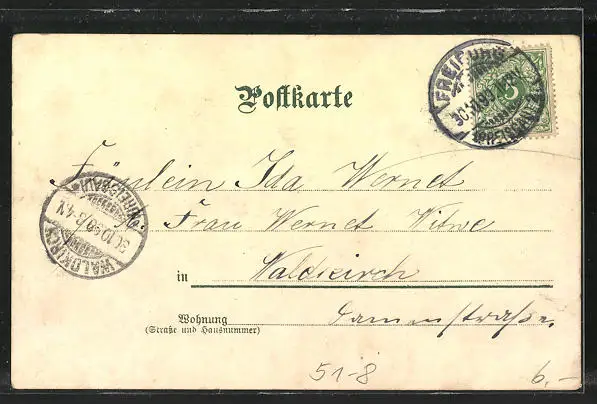 Postkarte
FREIBURG
5
Fräulein Ida Wernet
Frau Wernet Witwe
WALDKIRCH
(BREISGAU)
30.10.98.
in Waldkirch
Wohnung
(Straße und Hausnummer)
Damenstraße.
51-8
6.-